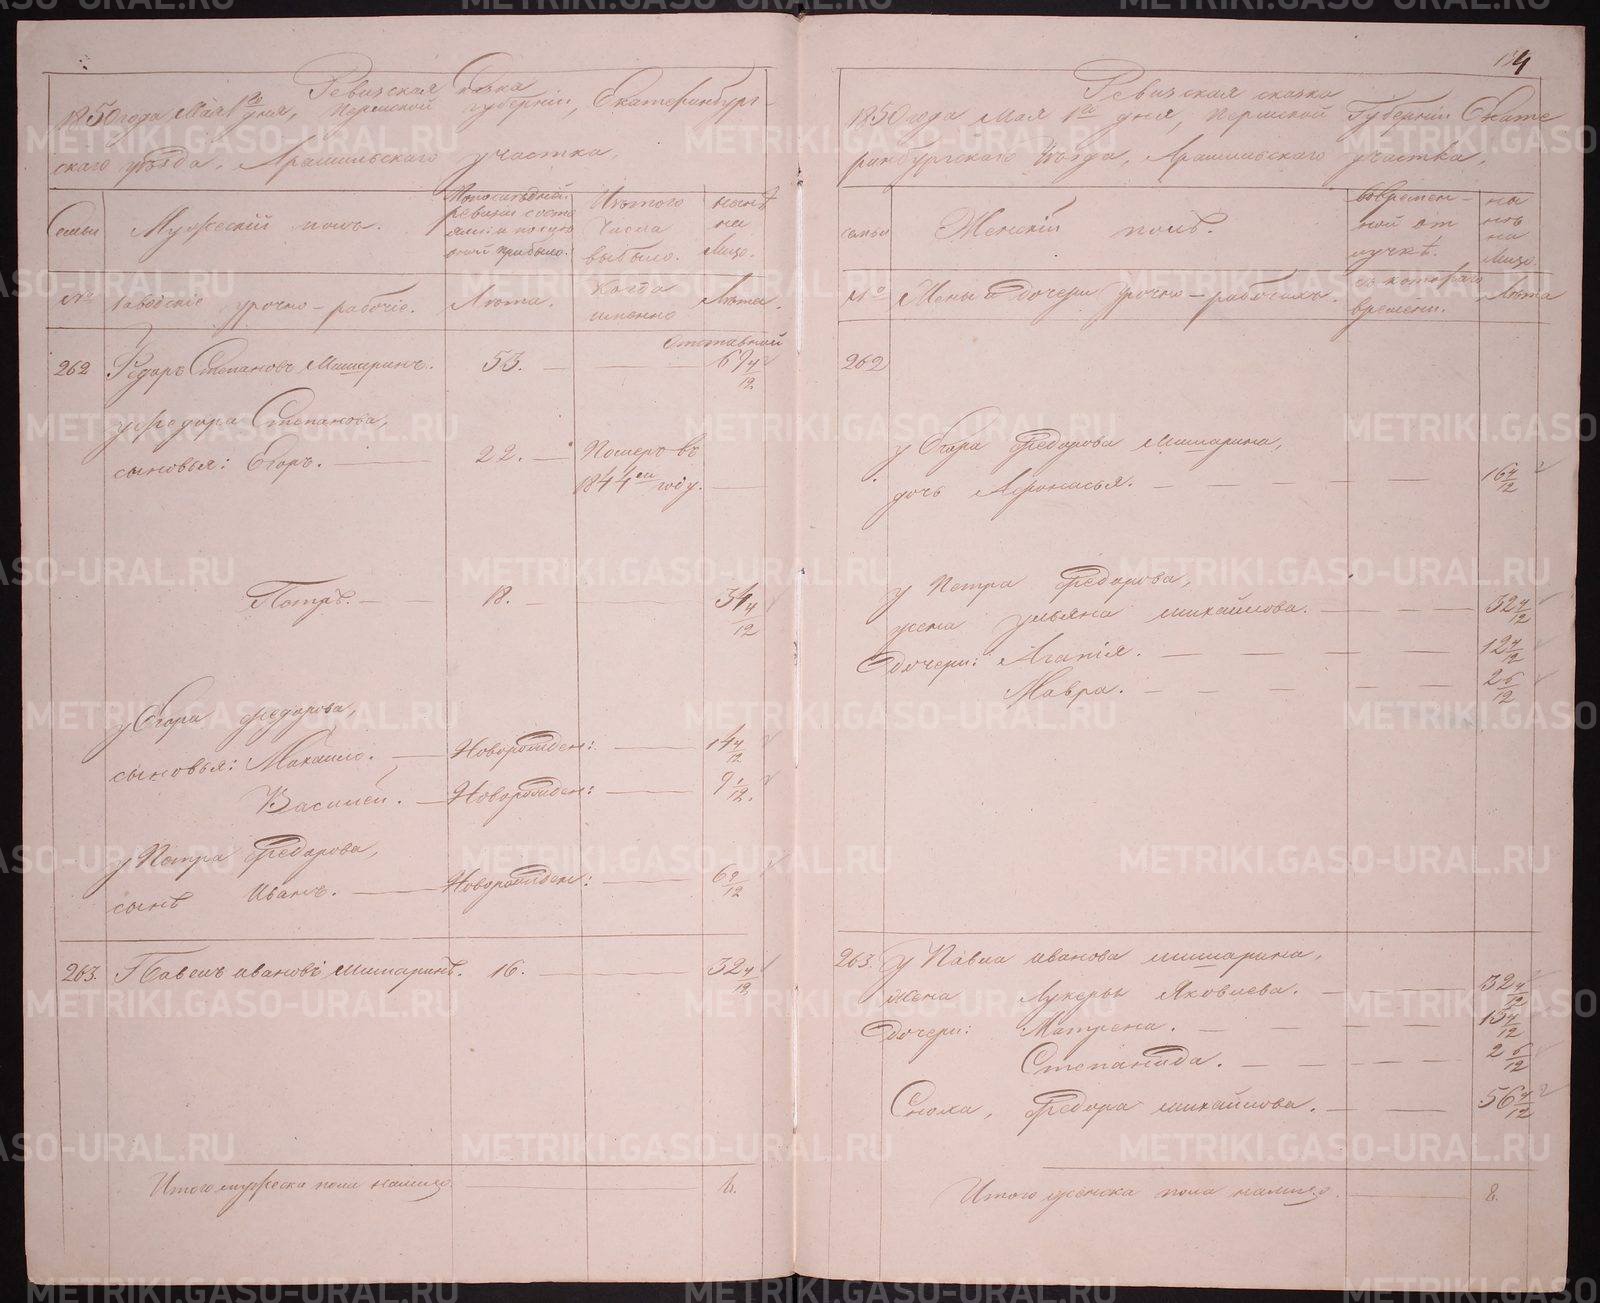 Ревизская сказка
1850 года Мая 1го дня, Пермской губернiи, Екатеринбург-
скаго уѣзда, Арамильскаго участка,
Семьи
Мужескiй полъ.
По последней ревизiи состояло и после оной прибыло.
Изъ того числа выбыло.
нынѣ на лицо.
№
Заводскiе урочно-рабочiе.
Лѣта.
Когда именно
Лѣта.
262 Федоръ Степановъ Мишаринъ. 53. Отставной 67 4/12
у Федора Степанова,
сыновья: Егоръ. 22. Померъ въ
1844ом году.
Петръ. 18. 34 4/12
у Егора Федорова,
сыновья: Михаило. Новорожден: 14 4/12
Василей. Новорожден: 9 1/12.
у Петра Федорова,
сынъ Иванъ. Новорожден: 6 9/12
263. Павелъ Ивановъ Мишаринъ. 16. 32 4/12
Итого мужеска пола налицо 6.
Ревизская сказка
1850 года Мая 1го дня, Пермской Губернiи Екате
ринбургскаго Уѣзда, Арамильскаго участка,
семьи
Женскiй полъ.
во времен-
ной от
лучкѣ.
на лицо
№
Жены и дочери урочно-рабочихъ.
съ котораго
времени.
Лѣта
262
у Егора Федорова Мишарина,
дочь Афонасья. 16 4/12
у Петра Федорова,
жена Ульяна Михайлова. 32 4/12
Дочери: Агапiя. 12 4/12
Мавра. 2 6/12
263. У Павла Иванова Мишарина,
Жена Лукерья Яковлева. 32 4/12
Дочери: Матрена. 13 4/12
Степанида. 2 6/12
Сноха, Федора Михайлова. 56 4/12
Итого женска пола налицо. 8.
METRIKI.GASO-URAL.RU